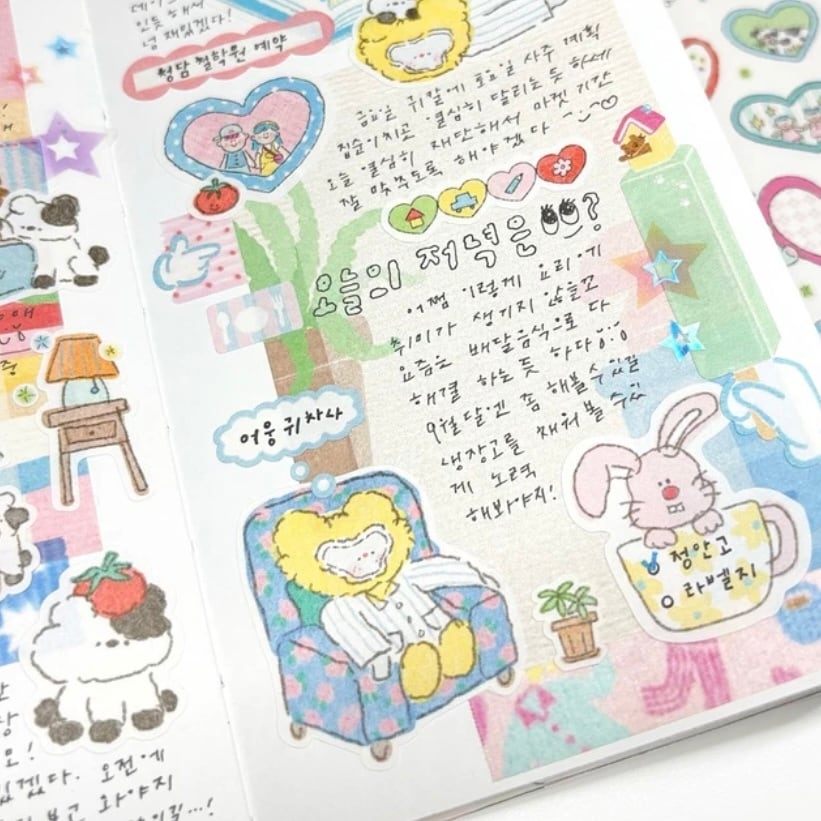 있듯 해서
넘 재밌겠다!
청담 철학원 예약
금요일 귀갈에 토요일 사주 계획
집순이지고 열심히 달리는 듯 하세
오늘 열심히 재단해서 마켓 기간
잘 맞추도록 해야겠다
오늘의 저녁은 ?
어쩜 이렇게 요리에
취미가 생기지 않을고
요즘은 배달음식으로 다
해결 하는듯 하다
9월달엔 좀 해볼수있길
냉장고를 채워볼수있
게 노력
해봐야지!
어웅 귀찮사
정안고
라벨지
모!
있겠다. 오전에
보고 와야지